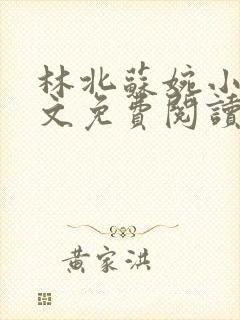 林北蘇婉小
文免費閱讀
黃家洪